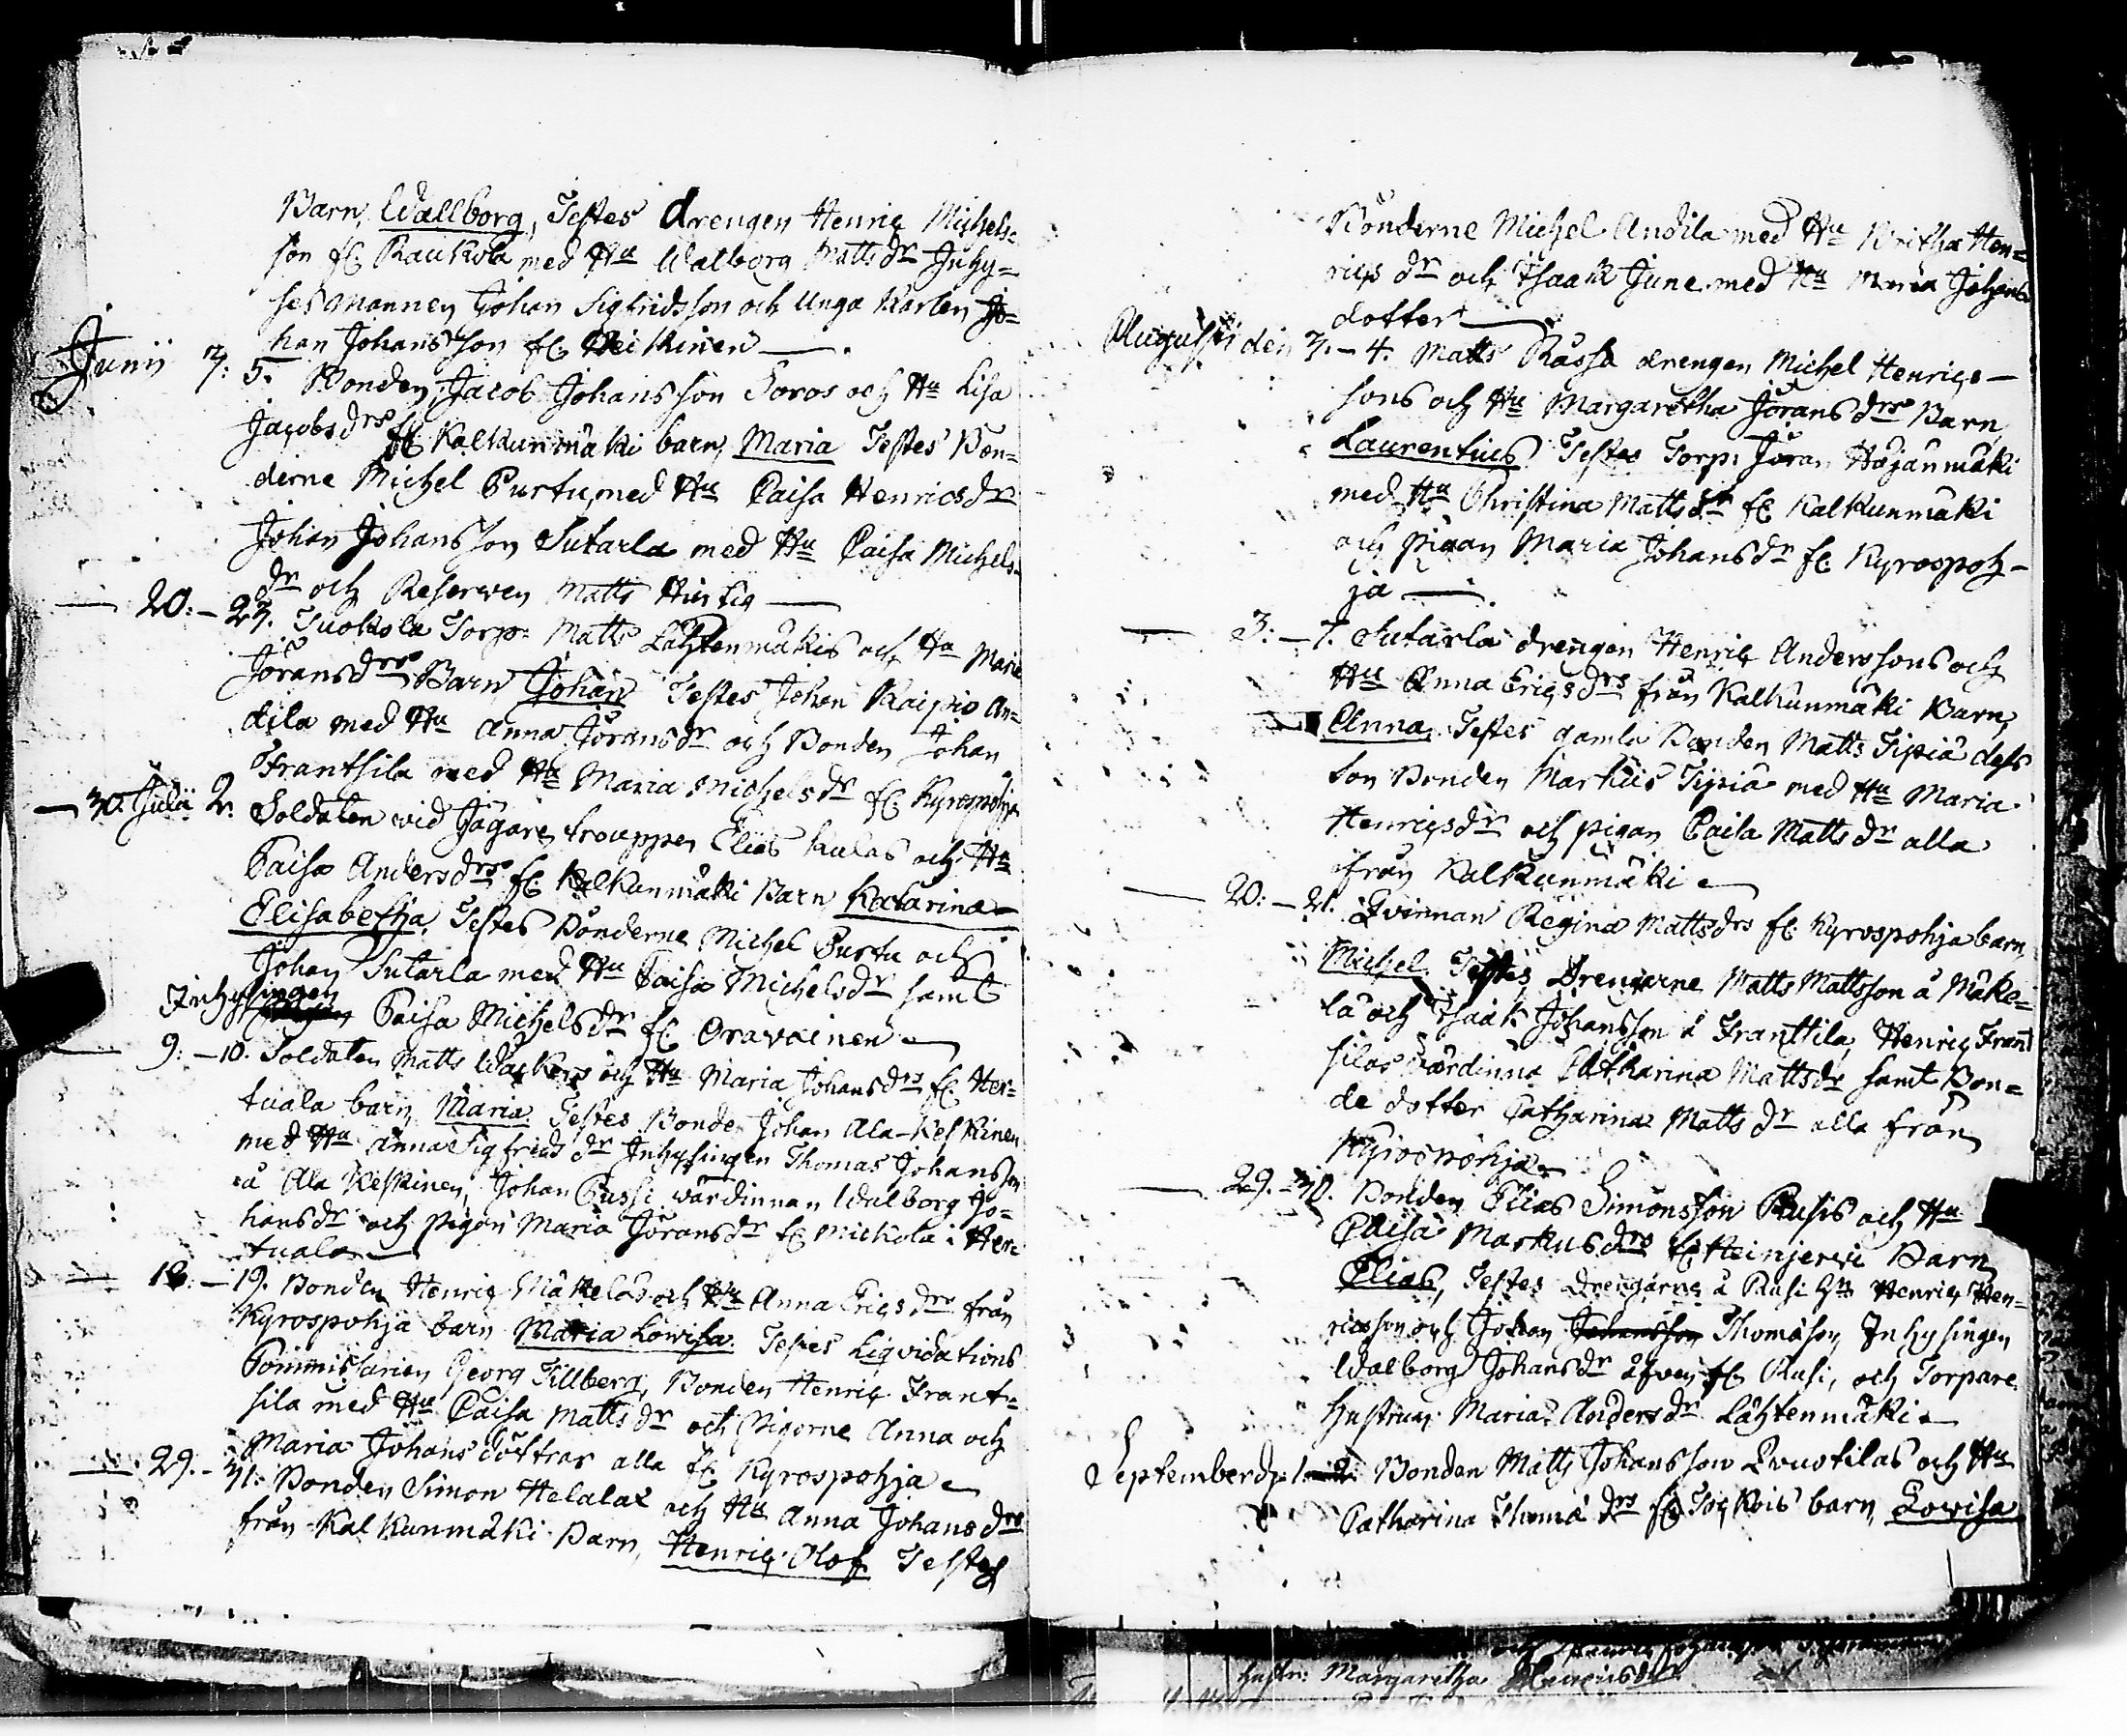 Barn, Wallborg, Testes drengen Henric Michels=
son fr. Raukola med Hu Walborg Matts dr Inhy=
ses Mannen Johan Sigfridsson och Unga Karlen Jo=
han Johansson fr. Heiskinen
Junii 3: 5. Bonden Jacob Johansson Soros och Hu Lisa
Jacobs drs fr Kalkunmäki barn, Maria Testes Bön=
derne Michel Purtu, med Hu Caisa Henrics dr
Johan Johansson Sutarla med Hu Caisa Michels=
dr och Reserven Matts Hurtig
— 20: — 23. Tuokola Torp: Matts Lähtenmäkis och Hu Maria
Jörans drs Barn Johan Testes Johan Kaipio An=
dila med Hu Anna Jörans dr och Bonden Johan
Frantsila med Hu Maria Michels dr fr. Kyrospohja
— 30. Julii 2. Soldaten wid Jägare trouppen Elias Kulas och Hu
Caisa Anders drs fr. Kalkunmäki Barn Katarina
Elisabetha. Testes Bönderne Michel Purtu och
Johan Sutarla med Hu Caisa Michels dr samt
Inhysingen Caisa Michels dr fr Oravainen
— 9: — 10. Soldaten Matts Wackers och Hu Maria Johans drs fr. Her=
tuala barn Maria Testes Bonde Johan Ala-Keskinen
med Hu Anna Sigfrids dr Inhysingen Thomas Johansson
å Ala Keskinen, Johan Pussi wärdinnan Walborg Jo=
hans dr och pigan Maria Jörans dr fr Mickola i Her=
tuala
— 18: — 19. Bonden Henric Mäkeläs och Hu Anna Erics drs från
Kyrospohja barn Maria Lowisa. Testes Liqvidations
Commissarien Georg Tillberg, Bonden Henric Frant=
sila med Hu Caisa Matts dr och Pigorne Anna och
Maria Johans döttrar alla fr Kyrospohja
— 29. — 31. Bonden Simon Helalas och Hu Anna Johans drs
från Kalkunmäki Barn, Henric Olof Testes
Bönderne Michel Andila med Hu Britha Hen=
rics dr och Isaak June med Hu Maria Johans
dotter
Augusti den 3. — 4. Matts Rässa drengen Michel Henrics=
sons och Hu Margaretha Jörans drs Barn
Laurentius Testes Torp: Jöran Hojanmäki
med Hu Christina Matts dr fr Kalkunmäki
och Pigan Maria Johans dr fr. Kyrospoh=
ja
— 3: — 7. Sutarla drengen Henric Anderssons och
Hu Anna Erics drs från Kalkunmäki Barn,
Anna, Testes gamla Bonden Matts Tipiä dess
son Bonden Markus Tipiä med Hu Maria
Henrics dr och pigan Caisa Matts dr alla
från Kalkunmäki
— 20: — 21. Qvinnan Regina Matts drs fr. Kyrospohja barn,
Michel Testes Drengarne Matts Mattsson å Mäke=
lä och Isaak Johansson å Franttila, Henric Frant
silas wärdinna Catharina Matts dr samt Bon=
de dotter Catharina Matts dr alla från
Kyrospohja
— 29. — 30. Bonden Elias Simonsson Rusis och Hu
Caisa Markus drs fr Heinjerwi Barn
Elias, Testes Drengarne å Rusi Hn Henric Hen=
ricsson och Johan Johansson Thomasson, Inhysingen
Walborg Johans dr fr Rusi, och Torpare
hustrun Maria Anders dr Lähtenmäki
September d. 1 Bonden Matts Johansson Qvustilas och Hu
Catharina Thomæ drs fr barn, Lowisa
hustr: Margaretha Henricsdotter